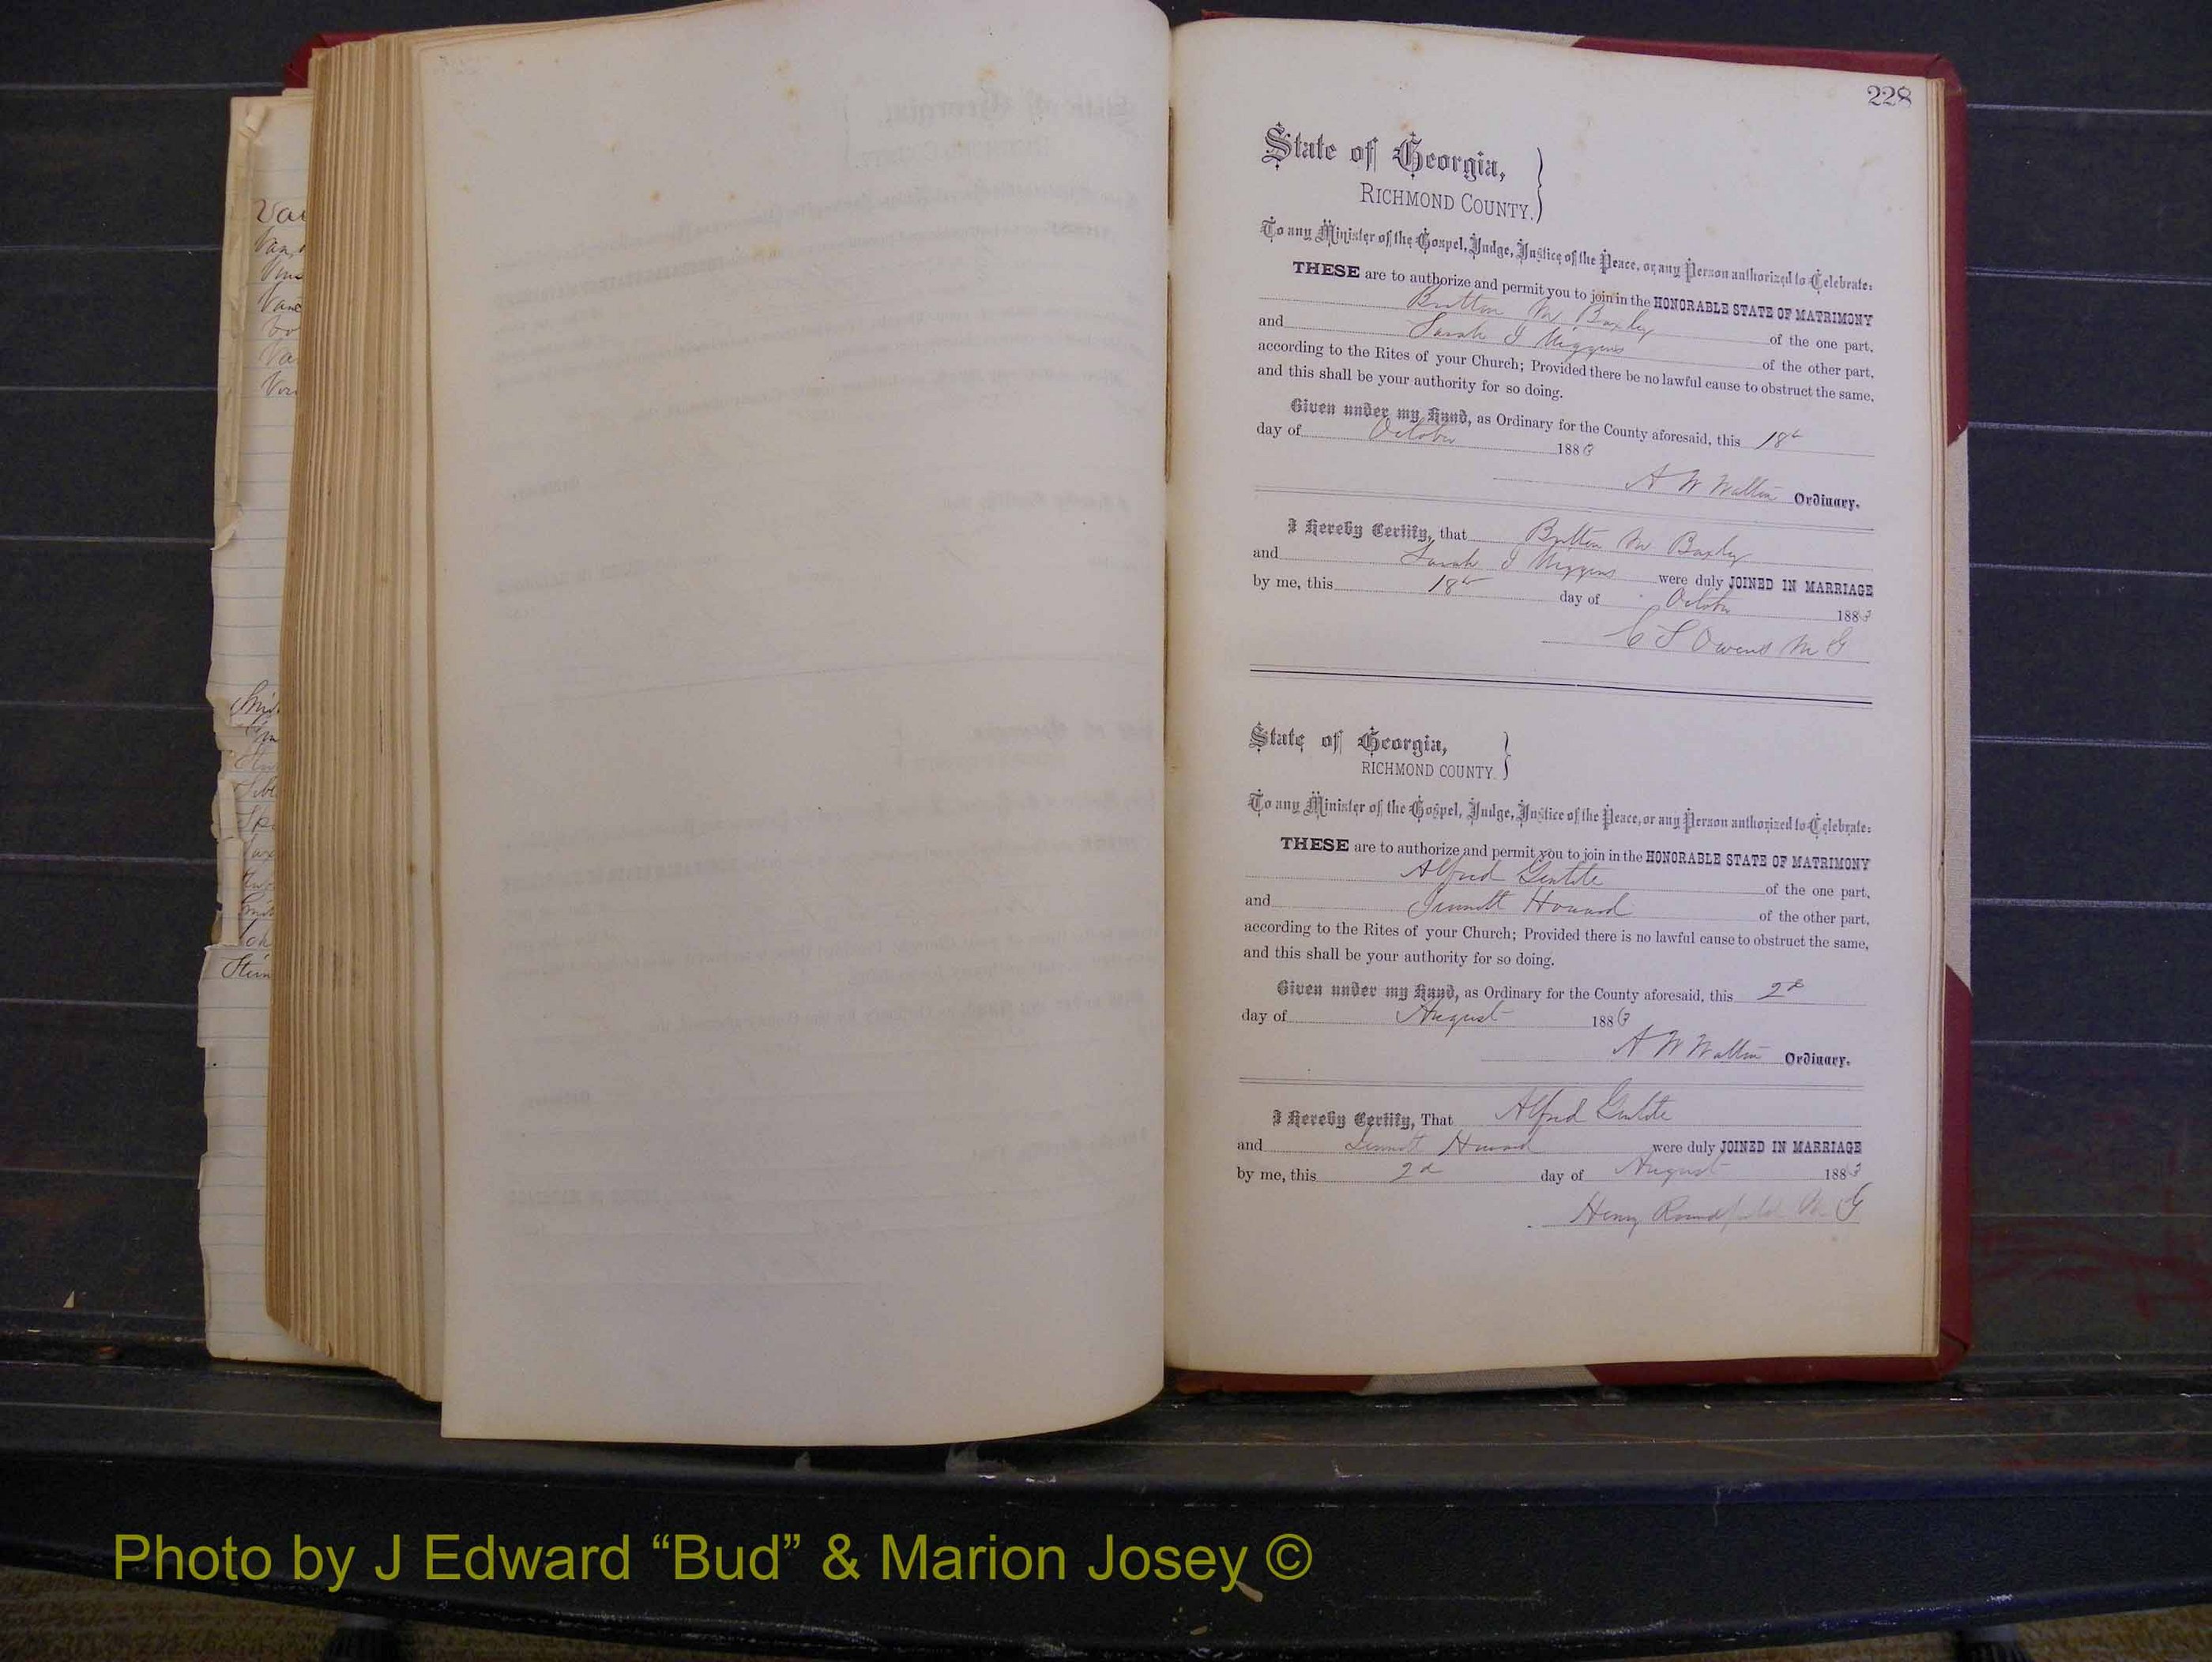 228
State of Georgia,
RICHMOND COUNTY.
To any Minister of the Gospel, Judge, Justice of the Peace, or any Person authorized to Celebrate:
THESE are to authorize and permit you to join in the HONORABLE STATE OF MATRIMONY
Britton M Baxley of the one part,
and Sarah J of the other part,
according to the Rites of your Church; Provided there be no lawful cause to obstruct the same,
and this shall be your authority for so doing.
Given under my Hand, as Ordinary for the County aforesaid, this 18th
day of October 1883
A W Walton Ordinary.
I Hereby Certify, that Britton M Baxley
and Sarah J were duly JOINED IN MARRIAGE
by me, this 18th day of October 1883
C S Owens M G
State of Georgia,
RICHMOND COUNTY.
To any Minister of the Gospel, Judge, Justice of the Peace, or any Person authorized to Celebrate:
THESE are to authorize and permit you to join in the HONORABLE STATE OF MATRIMONY
Alfred of the one part,
and Howard of the other part,
according to the Rites of your Church; Provided there is no lawful cause to obstruct the same,
and this shall be your authority for so doing.
Given under my Hand, as Ordinary for the County aforesaid, this 2d
day of August 1883
A W Walton Ordinary.
I Hereby Certify, That Alfred
and Howard were duly JOINED IN MARRIAGE
by me, this 2d day of August 1883
Henry G
Photo by J Edward “Bud” & Marion Josey ©